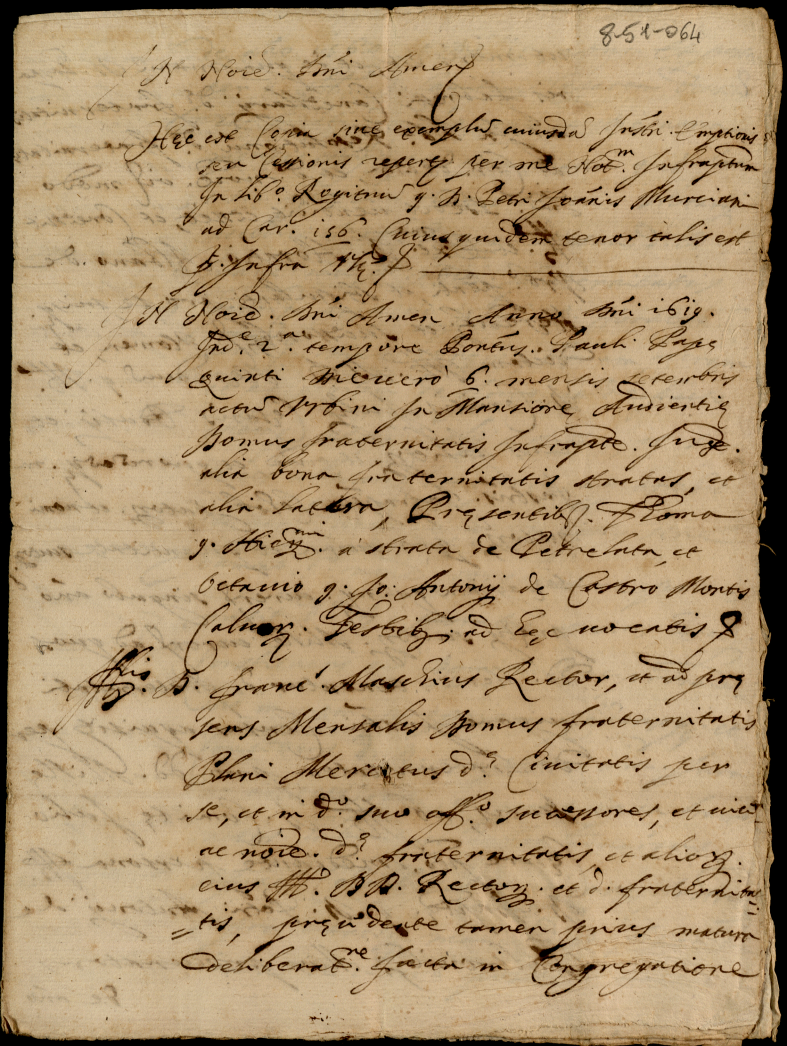 8-51-064
In Noie. Dni Amen
Hęc est Copia sive exemplũ cuiusdã Instri. Emptionis
seu Cessionis repertę per me Notm. Infraptum
In libo. Rogitũ q. D. Petri Joannis Murciani
ad Car. 156. Cuius quidem tenor talis est
In Noie. Dni Amen Anno Dni 1619.
Inde. 2a. tempore Pontus. Pauli Papę
Quinti die verò 6. mensis setembris
actũ Urbini In Mansione Audientię
Domus fraternitatis Infrapte. Iuxe.
alia bona fraternitatis stratas, et
alia latera, Pręsentibz. Thoma
q. Hieronimi. à strata de Petrelata, et
Octavio q. Jo. Antonij de Castro Montis
Calvorz. Testibz. ad hęc vocatis
D. Franc. Maschius Rector, et ad prę
sens Mensalis Domus fraternitatis
Plani Mercatus de. Civitatis per
se, et in do. suo offo. successores, et vice
ac noie. de. fraternitatis, et aliorz.
eius DD. Rectorz. et d. fraternita
=tis, pręcedente tamen prius matura
deliberatne. facta in Congregatione